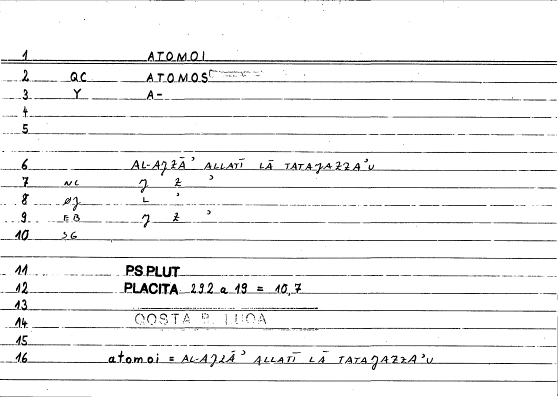 1 ATOMOI
2 QC ATOMOS
3 Y A-
4
5
6 AL-AJZĀ' ALLATĪ LĀ TATAJAZZA'U
7 NL J Z '
8 ØJ L '
9 EB J Z '
10 SG
11 PS PLUT
12 PLACITA 292 a 19 = 10,7
13
14 QOSTA B. LUQA
15
16 atomoi = AL-AJZĀ' ALLATĪ LĀ TATAJAZZA'U